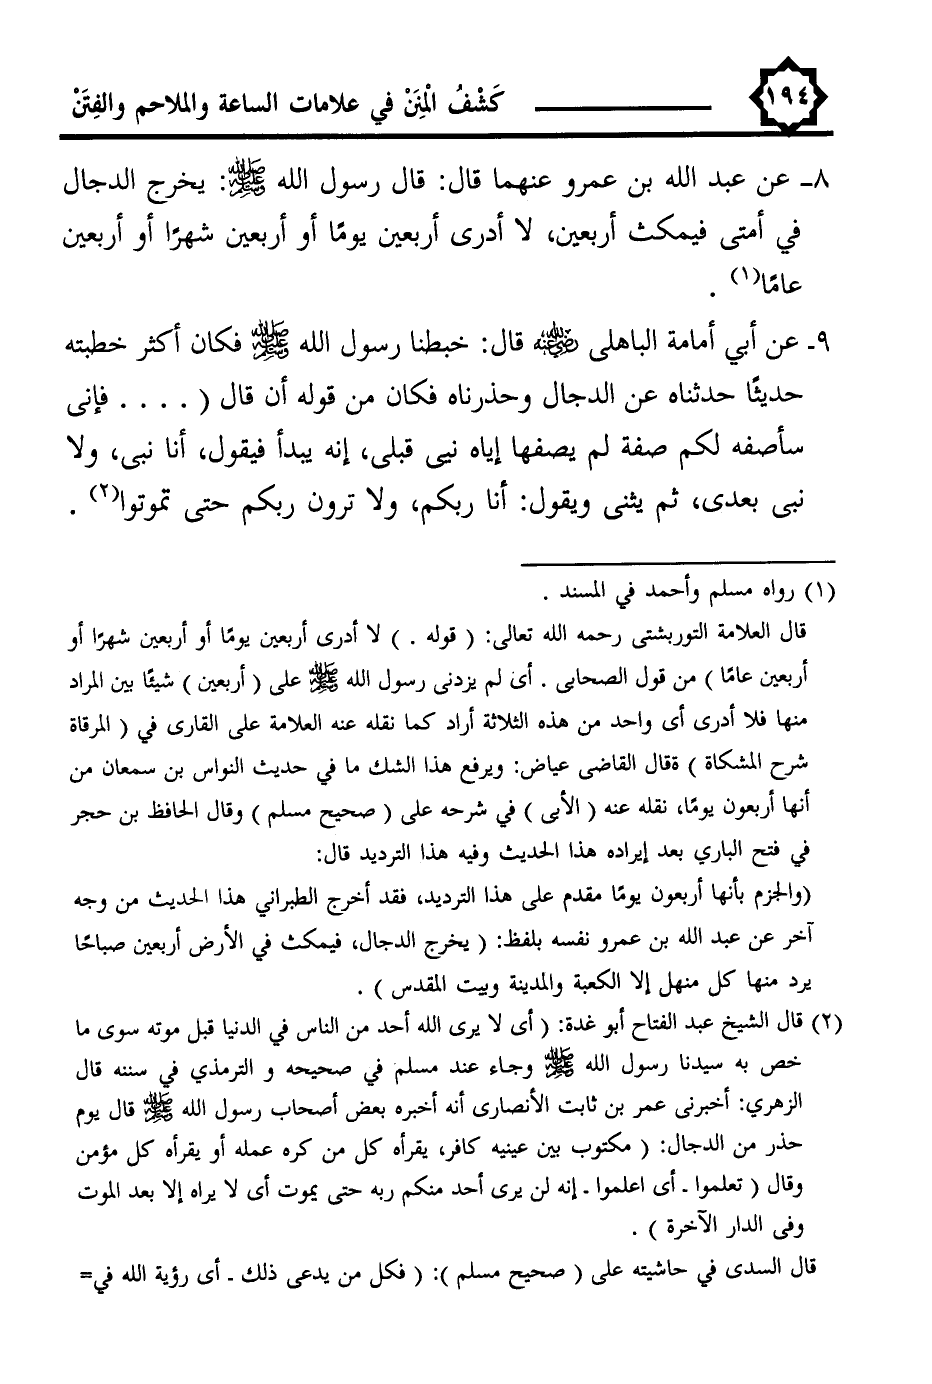 ١٩٤
كَشْفُ الْمِنَنْ في علامات الساعة والملاحم والفِتَنْ
٨ـ عن عبد الله بن عمرو عنهما قال: قال رسول الله ﷺ: يخرج الدجال
في أمتى فيمكث أربعين، لا أدرى أربعين يومًا أو أربعين شهرًا أو أربعين
عامًا(١) .
٩ـ عن أبي أمامة الباهلى رضي الله عنه قال: خبطنا رسول الله ﷺ فكان أكثر خطبته
حديثًا حدثناه عن الدجال وحذرناه فكان من قوله أن قال ( . . . . فإنى
سأصفه لكم صفة لم يصفها إياه نبى قبلى، إنه يبدأ فيقول، أنا نبى، ولا
نبى بعدى، ثم يثنى ويقول: أنا ربكم، ولا ترون ربكم حتى تموتوا(٢) .
(١) رواه مسلم وأحمد في المسند .
قال العلامة التوربشتى رحمه الله تعالى: ( قوله . ) لا أدرى أربعين يومًا أو أربعين شهرًا أو
أربعين عامًا ) من قول الصحابى . أى لم يزدنى رسول الله ﷺ على ( أربعين ) شيئًا بين المراد
منها فلا أدرى أى واحد من هذه الثلاثة أراد كما نقله عنه العلامة على القارى في ( المرقاة
شرح المشكاة ) ةقال القاضى عياض: ويرفع هذا الشك ما في حديث النواس بن سمعان من
أنها أربعون يومًا، نقله عنه ( الأبى ) في شرحه على ( صحيح مسلم ) وقال الحافظ بن حجر
في فتح الباري بعد إيراده هذا الحديث وفيه هذا الترديد قال:
(والجزم بأنها أربعون يومًا مقدم على هذا الترديد، فقد أخرج الطبراني هذا الحديث من وجه
آخر عن عبد الله بن عمرو نفسه بلفظ: ( يخرج الدجال، فيمكث في الأرض أربعين صباحًا
يرد منها كل منهل إلا الكعبة والمدينة وبيت المقدس ) .
(٢) قال الشيخ عبد الفتاح أبو غدة: ( أى لا يرى الله أحد من الناس في الدنيا قبل موته سوى ما
خص به سيدنا رسول الله ﷺ وجاء عند مسلم في صحيحه و الترمذي في سننه قال
الزهري: أخبرنى عمر بن ثابت الأنصارى أنه أخبره بعض أصحاب رسول الله ﷺ قال يوم
حذر من الدجال: ( مكتوب بين عينيه كافر، يقرأه كل من كره عمله أو يقرأه كل مؤمن
وقال ( تعلموا ـ أى اعلموا ـ إنه لن يرى أحد منكم ربه حتى يموت أى لا يراه إلا بعد الموت
وفى الدار الآخرة ) .
قال السدى في حاشيته على ( صحيح مسلم ): ( فكل من يدعى ذلك ـ أى رؤية الله في=